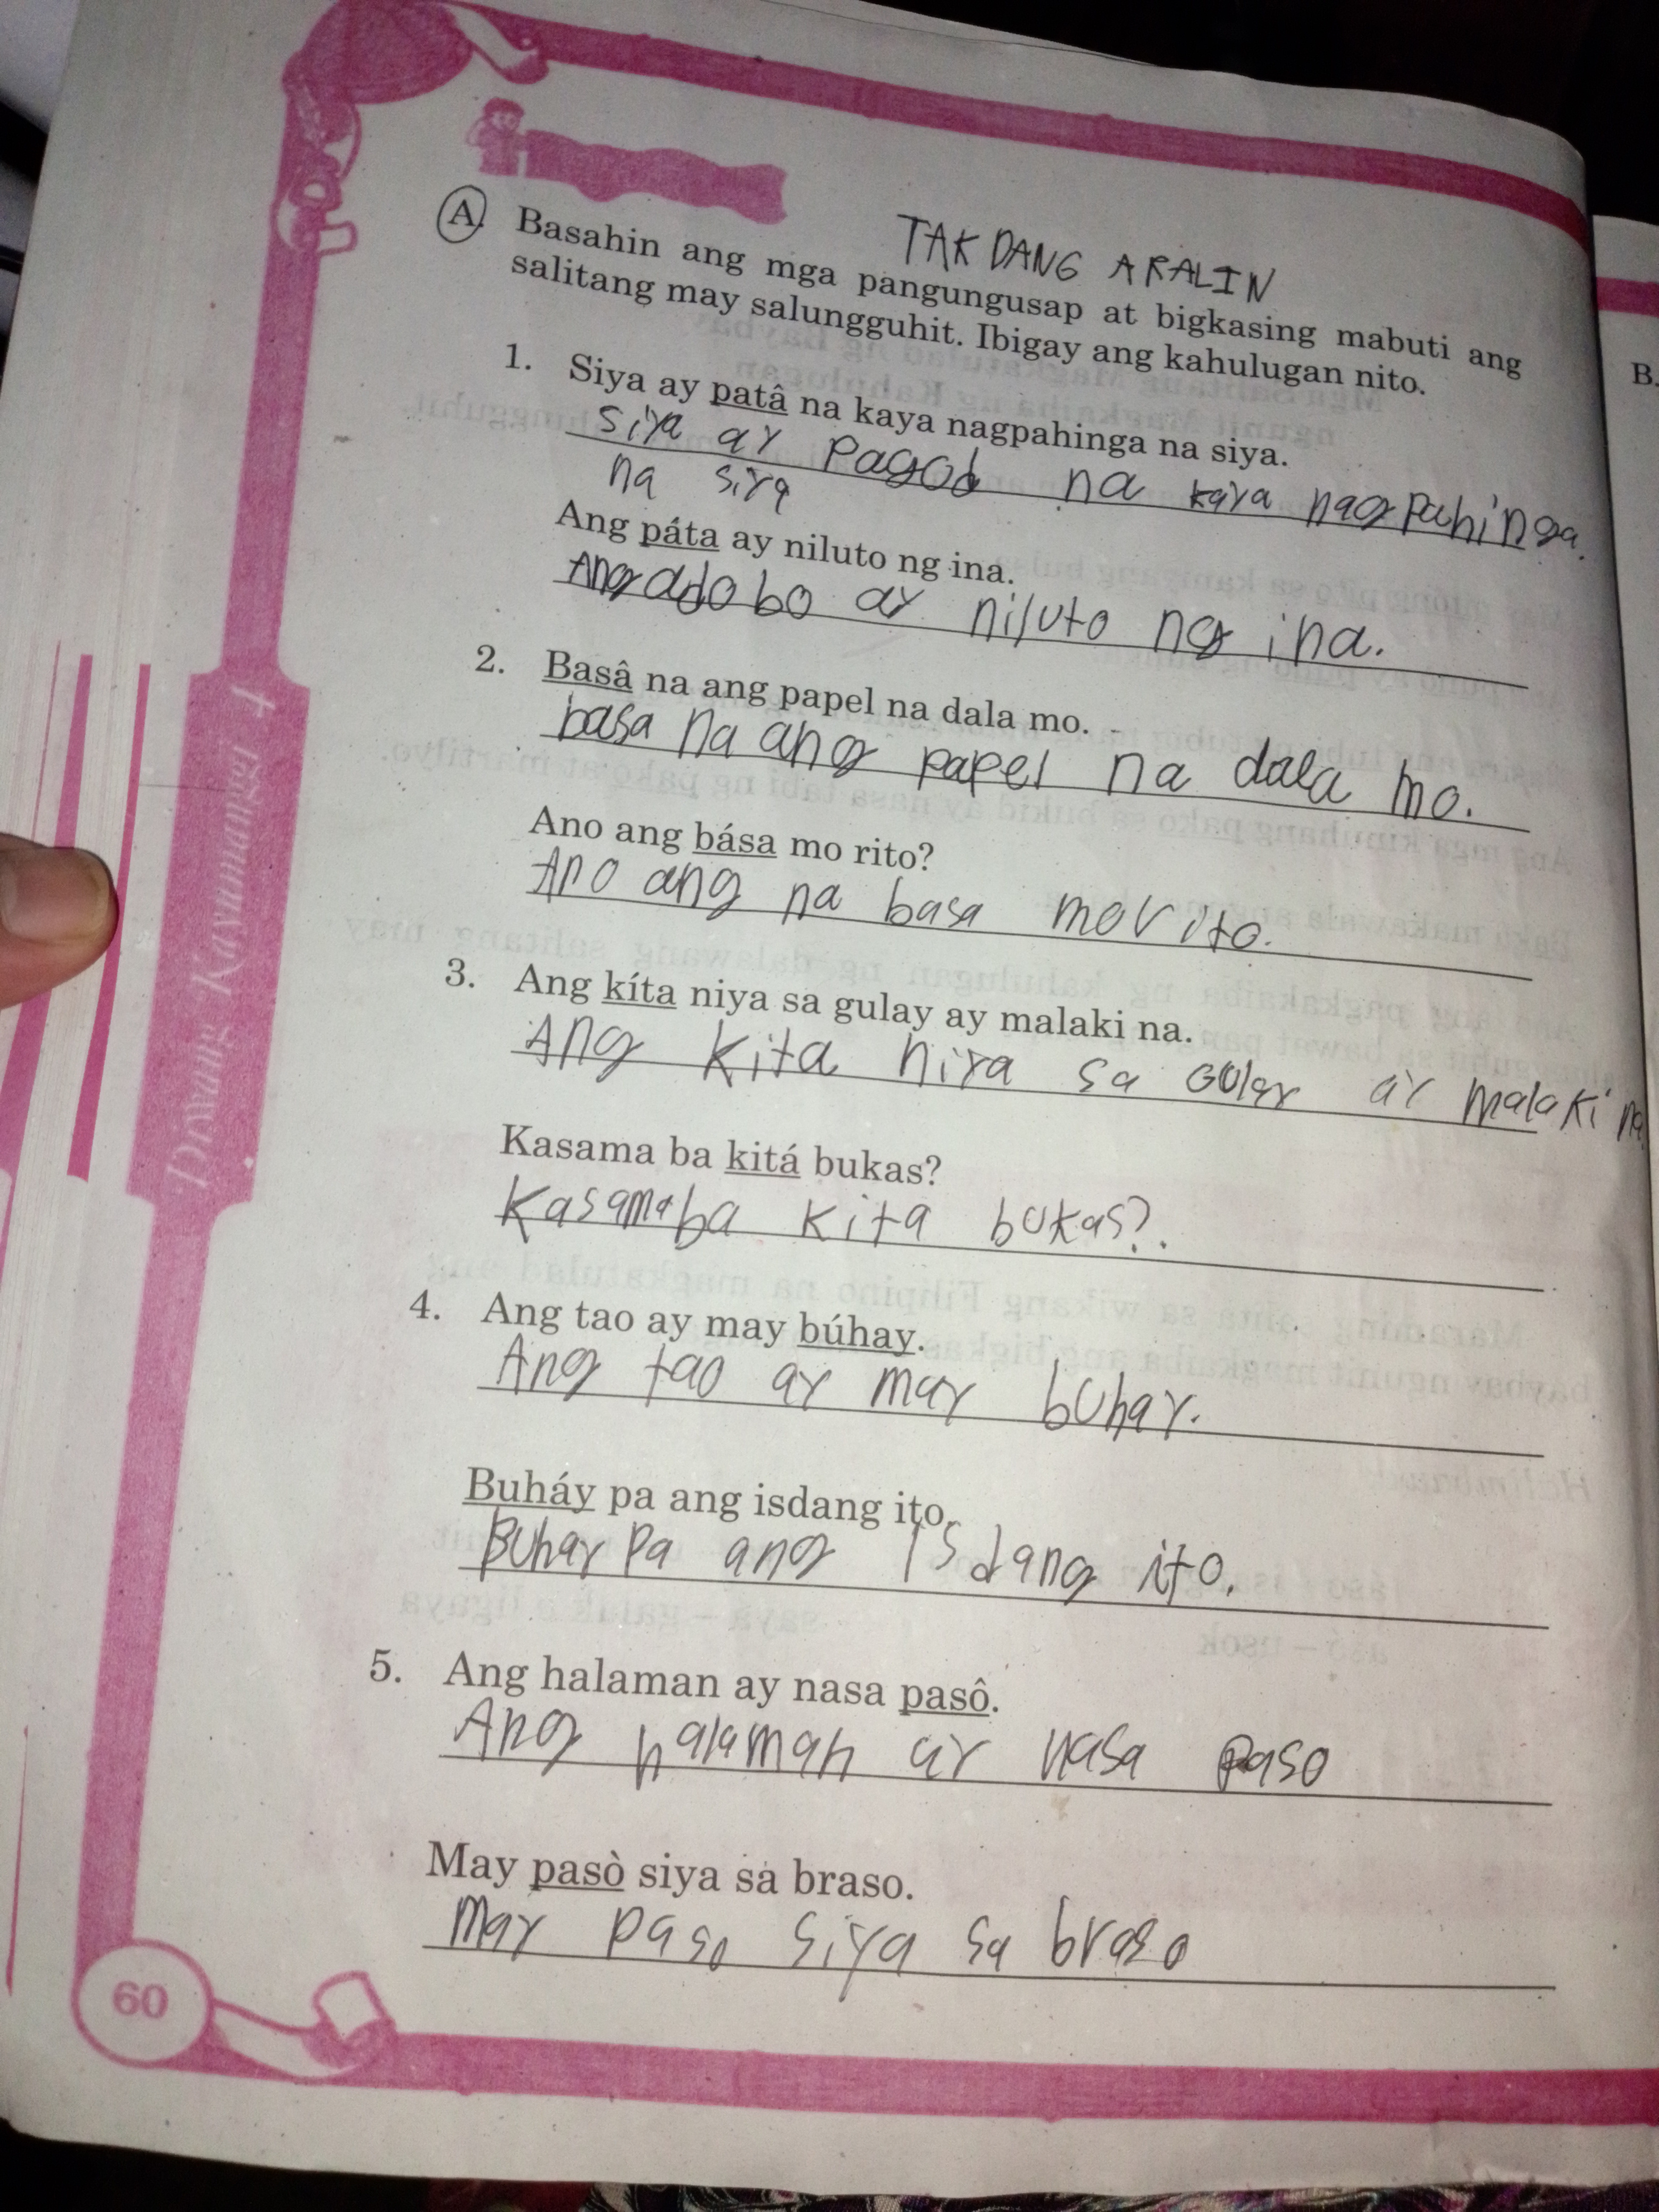 TAKDANG ARALIN
A. Basahin ang mga pangungusap at bigkasing mabuti ang
salitang may salungguhit. Ibigay ang kahulugan nito.
1. Siya ay patâ na kaya nagpahinga na siya.
siya ay Pagod na kaya nagpahinga.
na siya
Ang páta ay niluto ng ina.
Ang adobo ay niluto ng ina.
2. Basâ na ang papel na dala mo.
basa na ang papel na dala mo.
Ano ang bása mo rito?
Ano ang na basa mo rito.
3. Ang kíta niya sa gulay ay malaki na.
Ang kita niya sa gulay ay malaki na
Kasama ba kitá bukas?
Kasama ba kita bukas?.
4. Ang tao ay may búhay.
Ang tao ay may buhay.
Buháy pa ang isdang ito.
Buhay pa ang isdang ito.
5. Ang halaman ay nasa pasô.
Ang halaman ay nasa paso
May pasò siya sa braso.
may paso siya sa braso
Diwang Kayumanggi 4
60
B.